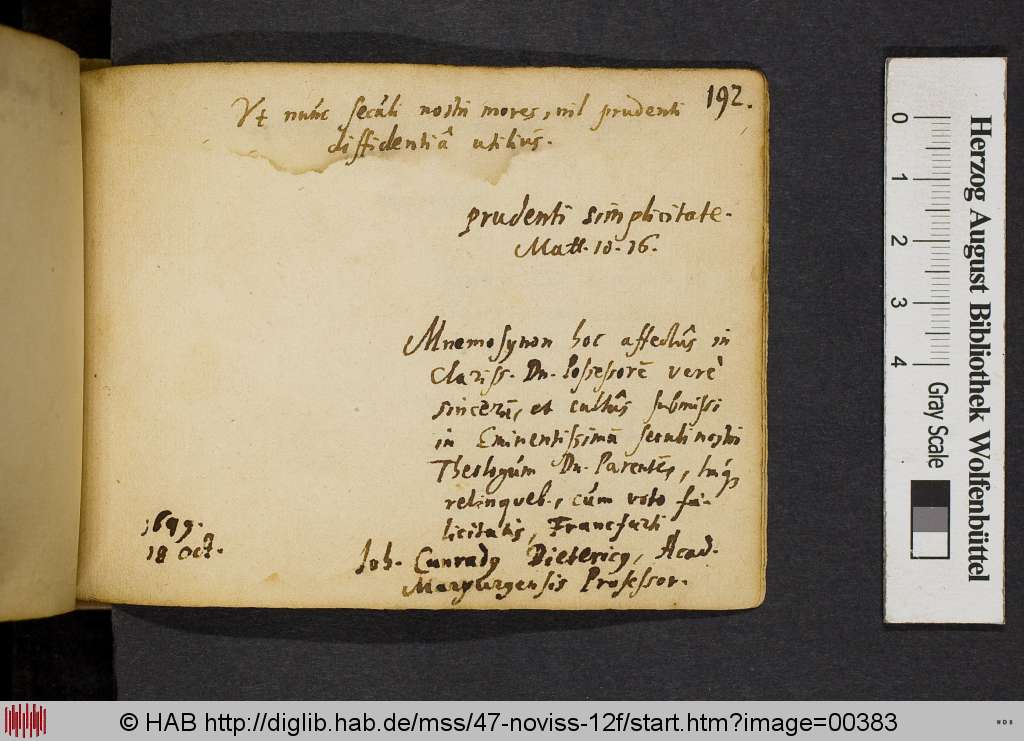 192.
Ut nunc seculi nostri mores, nil prudenti
diffidentiâ utilius.
prudenti simplicitate.
Matt. 10. 16.
Mnemosynon hoc affectûs in
Clariss. Dn. Possessorē verè
sinceri, et cultûs submissi
in Eminentissimū seculi nostri
Theologum Dn. Parentē,
relinqueb., cùm voto fæ-
licitatis, Francfurti
1649.
18 Oct.
Joh. Cunrady Dietericy, Acad.
Marpurgensis Professor.
0 1 2 3 4
Herzog August Bibliothek Wolfenbüttel
Gray Scale
© HAB http://diglib.hab.de/mss/47-noviss-12f/start.htm?image=00383
WDB